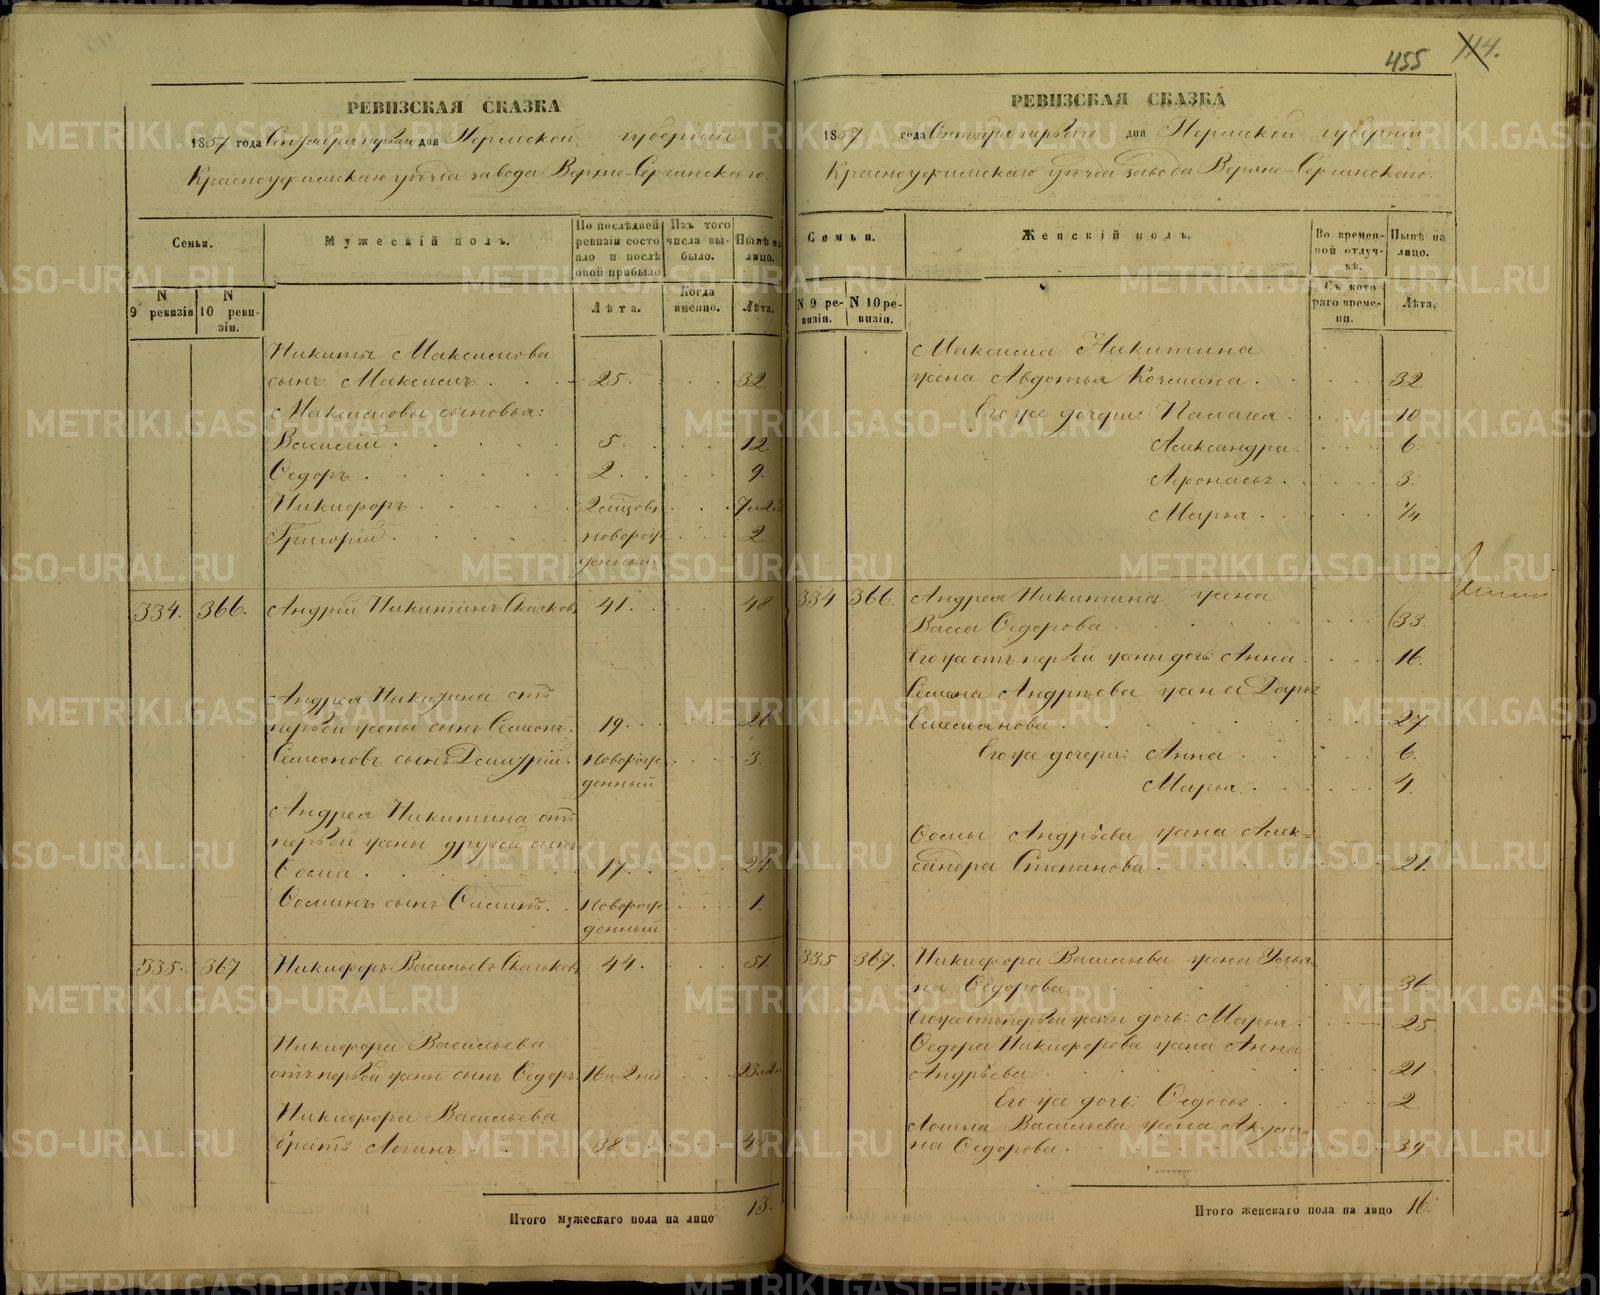 455 114.
РЕВИЗСКАЯ СКАЗКА
1857 года Сентября первого дня Пермской губернии
Красноуфимскаго уѣзда завода Верхно-Сергинскаго.
Семьи.
Мужескій полъ.
По послѣдней ревизіи состояло и послѣ оной прибыло
Изъ того числа выбыло.
Нынѣ на лицо.
N 9 ревизіи
N 10 ревизіи.
Лѣта.
Когда именно.
Лѣта.
Никиты Максимова
сынъ Максимъ . 25. 32
Максимовы сыновья:
Василій . 5. 12
Ѳедоръ . 2. 9.
Никифоръ . 2 мѣсцовъ
Григорій . новорож- 2
денный
334. 366. Андрей Никитинъ 41. 48
Андрея Никитина отъ
первой жены сынъ Семенъ. 19. 26
Семеновъ сынъ Дмитрій. Новорож- 3.
денный
Андрея Никитина отъ
первой жены другой сынъ
17. 24
сынъ Новорож- 1.
денный
335. 367 Никифоръ Васильевъ 44. 51.
Никифора Васильева
отъ первой жены сынъ Ѳедоръ
Никифора Васильева
братъ Логинъ . 38 45
Итого мужескаго пола на лицо 13.
РЕВИЗСКАЯ СКАЗКА
1857 года Сентября первого дня Пермской губерніи
Красноуфимскаго уѣзда завода Верхно-Сергинскаго.
Семьи.
Женскій полъ.
Во временной отлучкѣ.
Нынѣ на лицо.
N 9 ревизіи.
N 10 ревизіи.
Съ котораго времени.
Лѣта.
Максима Никитина
жена Авдотья Козмина . 32
Его же дочери: Палагея . 10
Александра 6.
Афонасья . 3.
Марья . 1/4.
334 366. Андрея Никитина жена
Васса Ѳедорова . 33.
Его же отъ первой жены дочь Анна . 16.
Семена Андрѣева жена Дарья
Емельянова . 27
Его же дочери: Анна . 6.
Марья . 4.
Андрѣева жена Алек-
сандра Степанова . 21.
335 367. Никифора Васильева жена Улья-
на Ѳедорова . 36.
Его же отъ первой жены дочь: Марья . 25
Ѳедора Никифорова жена Анна
Андрѣева . 21
Его же дочь: Ѳедосья . 2
Логина Васильева жена Акули-
на Ѳедорова . 39
Итого женскаго пола на лицо 16.
METRIKI.GASO-URAL.RU